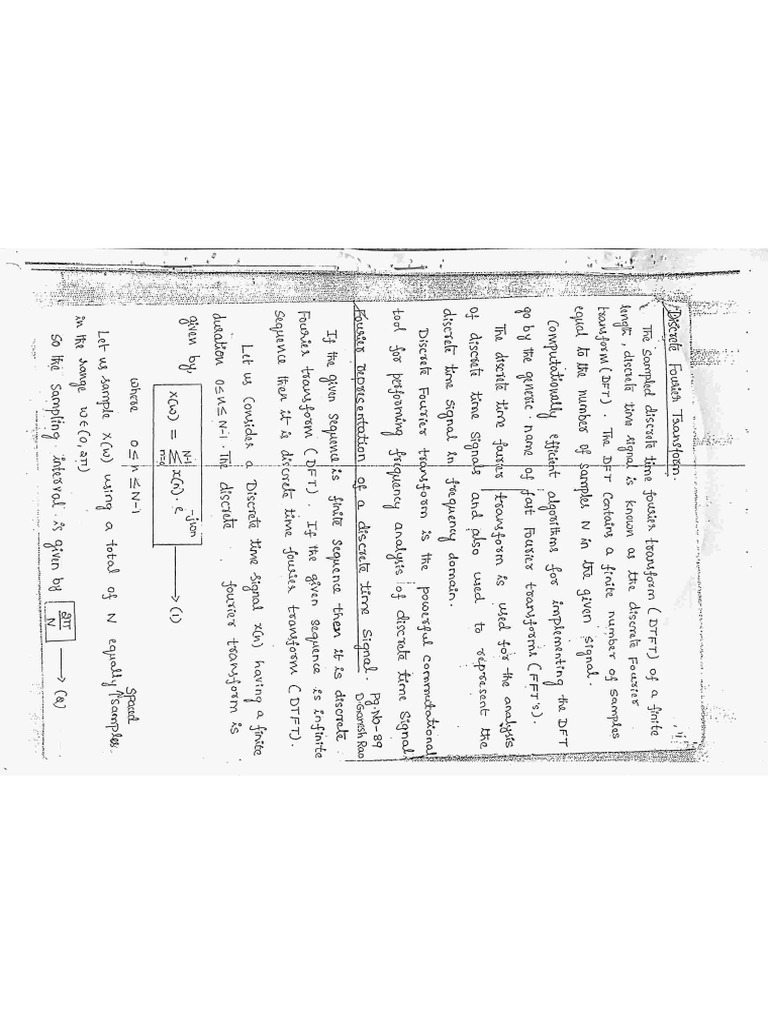 Discrete Fourier Transform.
The sampled discrete time fourier transform (DTFT) of a finite
length, discrete time signal is known as the discrete Fourier
transform (DFT). The DFT contains a finite number of samples
equal to the number of samples N in the given signal.
Computationally efficient algorithms for implementing the DFT
go by the generic name of fast Fourier transforms (FFT's).
The discrete time fourier transform is used for the analysis
of discrete time signals and also used to represent the
discrete time signal in frequency domain.
Discrete Fourier transform is the powerful commutational
tool for performing frequency analysis of discrete time signal
Fourier representation of a discrete time signal. Pg.No-89
D.Ganesh Rao
If the given sequence is finite sequence then it is discrete
Fourier transform (DFT). If the given sequence is infinite
sequence then it is discrete time fourier transform (DTFT).
Let us consider a Discrete time signal x(n) having a finite
duration 0≤n≤N-1. The discrete fourier transform is
given by,
x(ω) = Σ_{n=0}^{N-1} x(n). e^{-jωn} → (1)
where 0≤n≤N-1
Let us sample x(ω) using a total of N equally spaced samples.
in the range ω∈(0,2π)
So the sampling interval is given by 2π/N → (2)